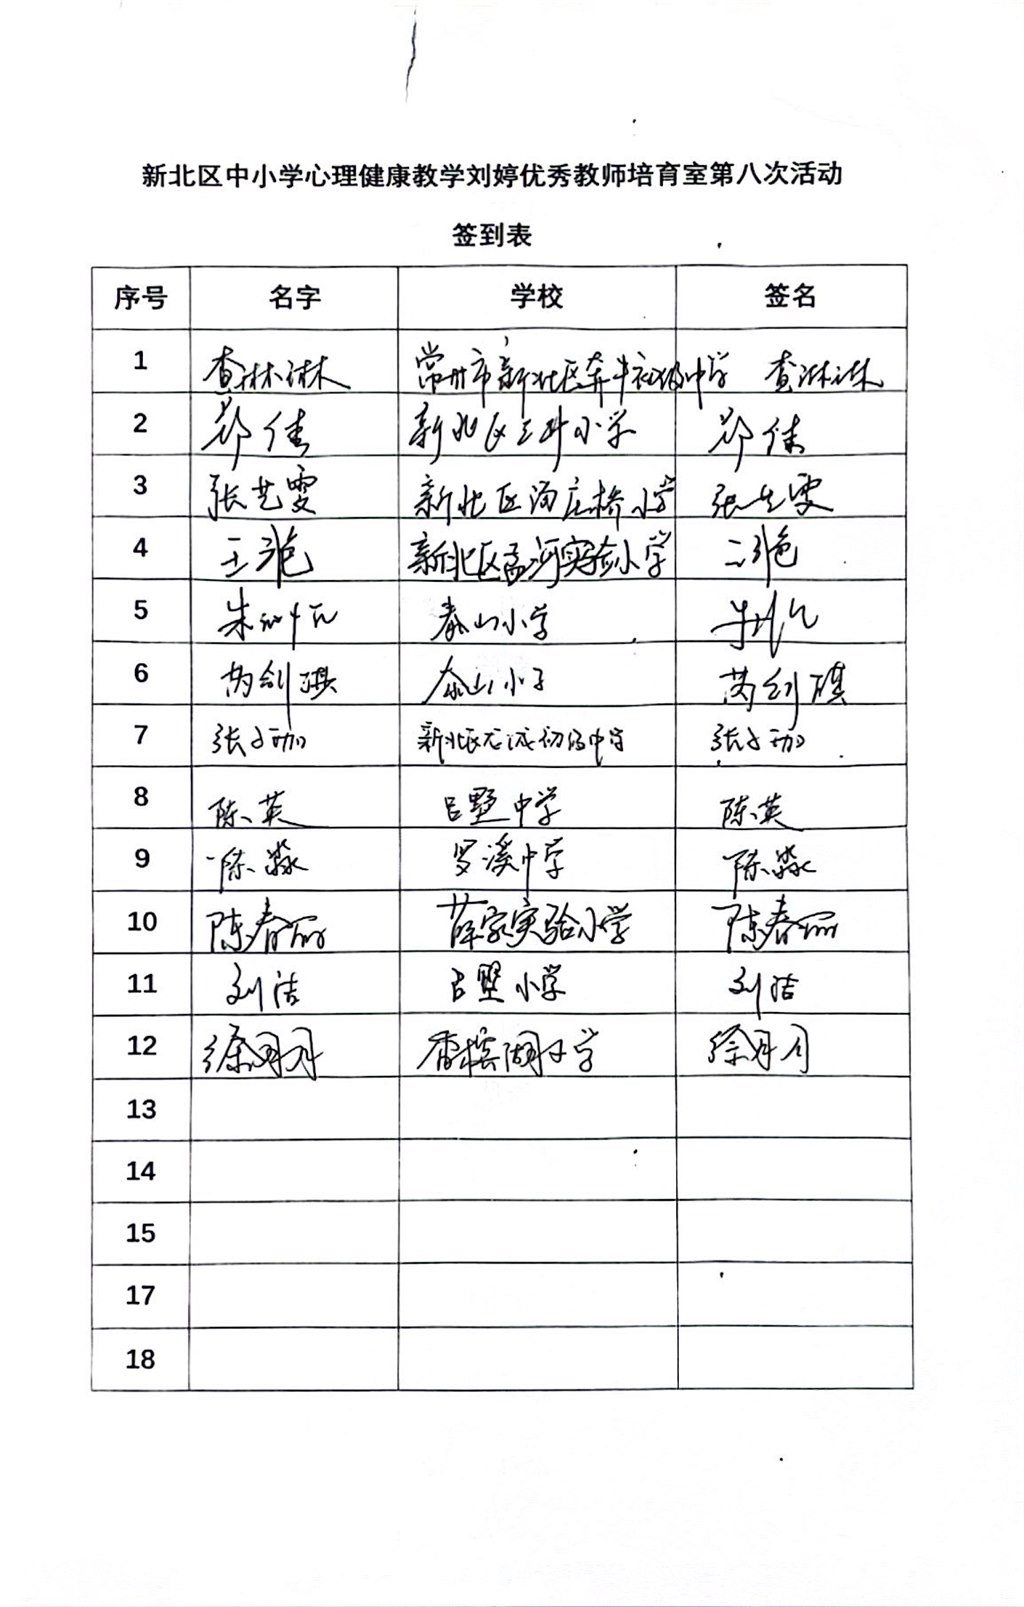 新北区中小学心理健康教学刘婷优秀教师培育室第八次活动
签到表
序号 名字 学校 签名
1 查淋淋 常州市新北区奔牛初级中学 查淋淋
2 邓佳 新北区三井小学 邓佳
3 张艺雯 新北区汤庄桥小学 张艺雯
4 王艳 新北区孟河实验小学 王艳
5 朱 泰山小学
6 芮剑琪 泰山小学 芮剑琪
7 张子珈 新北区 初级中学 张子珈
8 陈英 吕墅中学 陈英
9 陈淼 罗溪中学 陈淼
10 陈春丽 薛家实验小学 陈春丽
11 刘洁 吕墅小学 刘洁
12 徐丹丹 香槟湖小学 徐丹丹
13
14
15
17
18